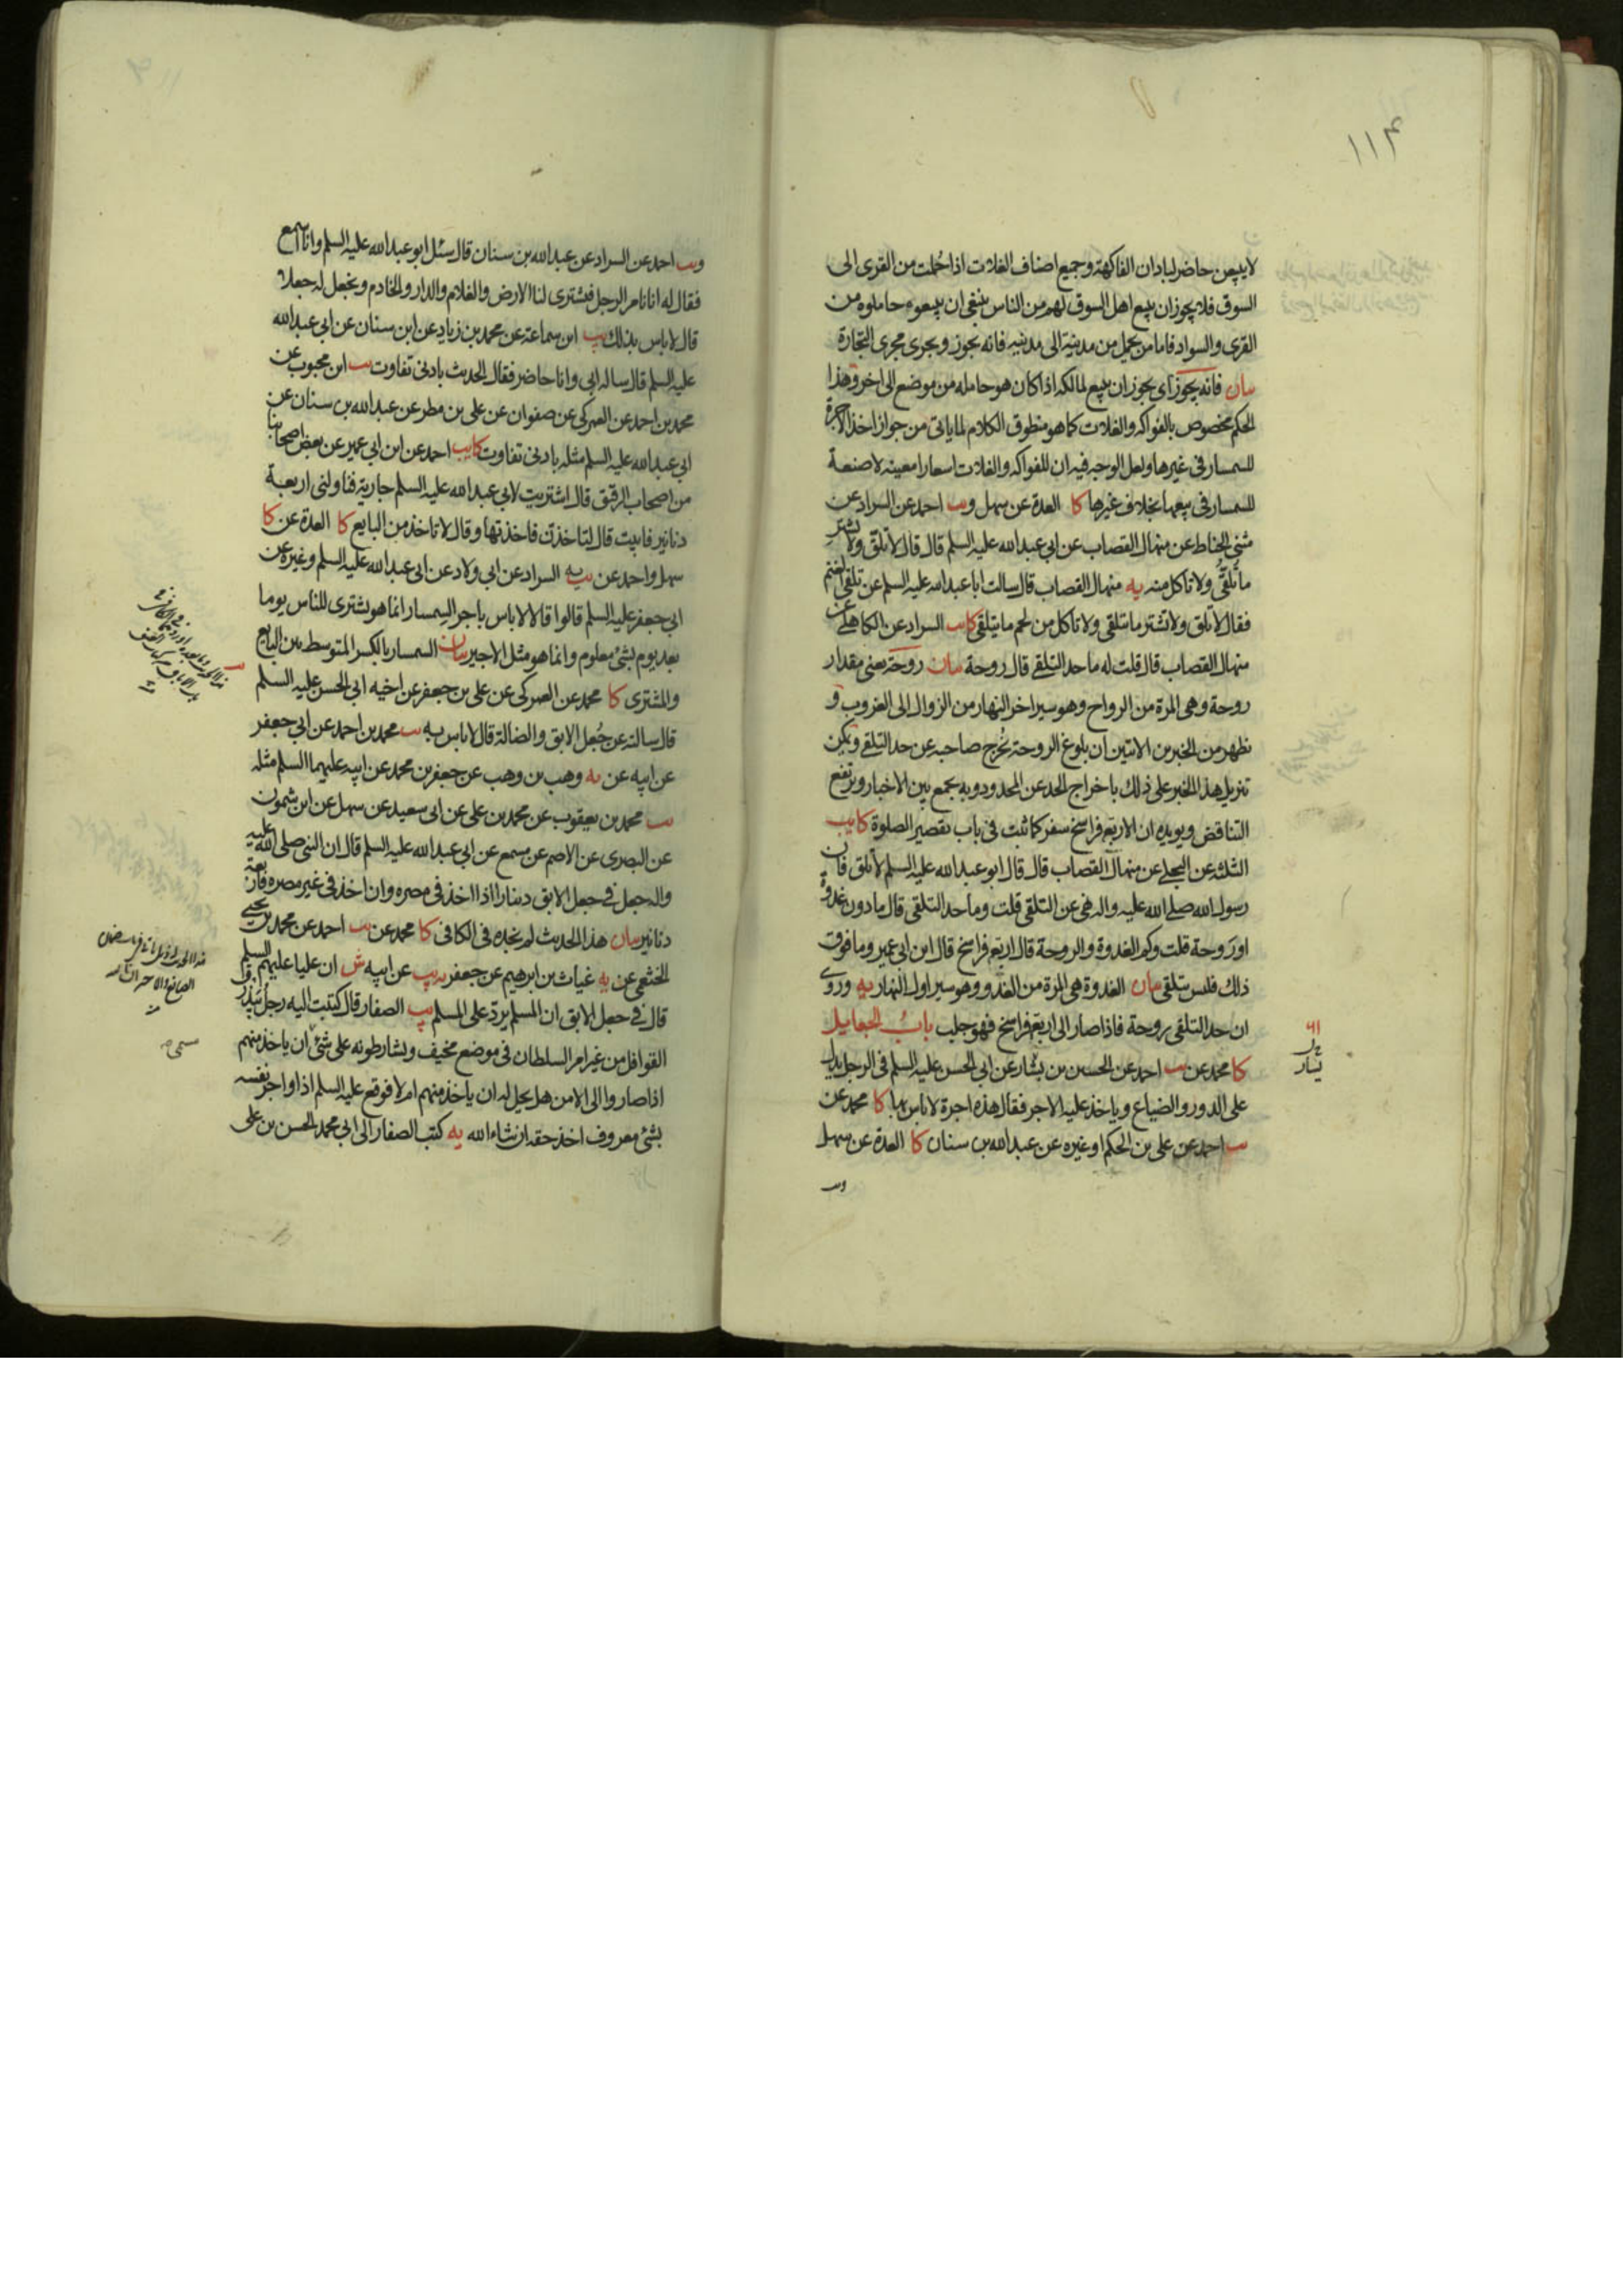 ١١٣
لا يبيعن حاضر لباد ان الفاكهة وجميع اصناف الغلات اذا حُملت من القرى الى
السوق فلا يجوز ان يبيع اهل السوق لهم من الناس ينبغي ان يبيعوه حاملوه من
القرى والسواد فاما من يحمل من مدينة الى مدينة فانه يجوز ويجرى مجرى التجارة
بيان فانه يجوز اي يجوز ان يبيع لمالكه اذا كان هو حامله من موضع الى اخر وهذا
الحكم مخصوص بالفواكه والغلات كما هو منطوق الكلام لما ياتى من جواز اخذ الاجرة
للسمسار في غيرها ولعل الوجه فيه ان للفواكه والغلات اسعارا معينة لا صنعة
للسمسار في بيعها بخلاف غيرها كا العدة عن سهل ويب احمد عن السراد عن
مثنى الحناط عن منهال القصاب عن ابي عبد الله عليه السلم قال قال لا تلق ولا تشتر
ما تُلقّى ولا تاكل منه يه منهال القصاب قال سالت ابا عبد الله عليه السلم عن تلقي الغنم
فقال لا تلق ولا تشتر ما تتلقى ولا تاكل من لحم ما يتلقى كايب السراد عن الكاهلي عن
منهال القصاب قال قلت له ما حد التلقي قال روحة بيان روحة يعنى مقدار
روحة وهي المرة من الرواح وهو سير اخر النهار من الزوال الى الغروب و
يظهر من الخبرين الاتيين ان بلوغ الروحة يخرج صاحبه عن حد التلقي ويمكن
تنزيل هذا الخبر على ذلك باخراج الحد عن المحدود وبه يجمع بين الاخبار ويرتفع
التناقض ويويده ان الاربع فراسخ سفر كما ثبت في باب تقصير الصلوة كايب
الثلثة عن البجلي عن منهال القصاب قال قال ابو عبد الله عليه السلم لا تلق فان
رسول الله صلى الله عليه واله نهى عن التلقي قلت وما حد التلقي قال ما دون غدوة
او روحة قلت وكم الغدوة والروحة قال اربع فراسخ قال ابن ابي عمير وما فوق
ذلك فليس بتلقي بيان الغدوة هي المرة من الغدو وهو سير اول النهار يه وروي
ان حد التلقي روحة فاذا صار الى اربع فراسخ فهو جلب بابُ الجعايل
كا محمد عن يب احمد عن الحسين بن بشار عن ابي الحسن عليه السلم في الرجل يدل
على الدور والضياع وياخذ عليه الاجر فقال هذه اجرة لا باس بها كا محمد عن
يب احمد عن علي بن الحكم او غيره عن عبد الله بن سنان كا العدة عن سهل
ويب
يسار
ويب احمد عن السراد عن عبد الله بن سنان قال سئل ابو عبد الله عليه السلم وانا اسمع
فقال له انا نامر الرجل فيشترى لنا الارض والغلام والدار والخادم ويجعل له جعلا
قال لا باس بذلك يب ابن سماعة عن محمد بن زياد عن ابن سنان عن ابي عبد الله
عليه السلم قال ساله ابي وانا حاضر فقال الحديث بادنى تفاوت يب ابن محبوب عن
محمد بن احمد عن العمركي عن صفوان عن علي بن مطر عن عبد الله بن سنان عن
ابي عبد الله عليه السلم مثله بادنى تفاوت كايب احمد عن ابن ابي عمير عن بعض اصحابنا
من اصحاب الرقيق قال اشتريت لابي عبد الله عليه السلم جارية فناولنى اربعة
دنانير فابيت قال لتاخذن فاخذتها وقال لا تاخذ من البايع كا العدة عن كا
سهل واحمد عن يب يه السراد عن ابي ولاد عن ابي عبد الله عليه السلم وغيره عن
ابي جعفر عليه السلم قالوا قالا لا باس باجر السمسار انما هو يشترى للناس يوما
بعد يوم بشئ معلوم وانما هو مثل الاجير بيان السمسار بالكسر المتوسط بين البايع
والمشترى كا محمد عن العمركي عن علي بن جعفر عن اخيه ابي الحسن عليه السلم
قال سالته عن جُعل الابق والضالة قال لا باس به يب محمد بن احمد عن ابي جعفر
عن ابيه عن يه وهب بن وهب عن جعفر بن محمد عن ابيه عليهما السلم مثله
يب محمد بن يعقوب عن محمد بن على عن ابي سعيد عن سهل عن ابن شمون
عن البصرى عن الاصم عن مسمع عن ابي عبد الله عليه السلم قال ان النبي صلى الله عليه
واله جعل في جعل الابق دينارا اذا اخذ في مصره وان اخذ في غير مصره فاربعة
دنانير بيان هذا الحديث لم نجده في الكافي كا محمد عن يب احمد عن محمد بن يحيى
الخثعمي عن يه غياث بن ابرهيم عن جعفر يه يب عن ابيه ش ان عليا عليهم السلم
قال في جعل الابق ان المسلم يردّ على المسلم يب الصفار قال كتبت اليه رجل يبذرق
القوافل من غير امر السلطان في موضع مخيف ويشارطونه على شئ ان ياخذ منهم
اذا صاروا الى الامن هل يحل له ان ياخذ منهم ام لا فوقع عليه السلم اذا واجر نفسه
بشئ معروف اخذ حقه ان شاء الله يه كتب الصفار الى ابي محمد الحسن بن على